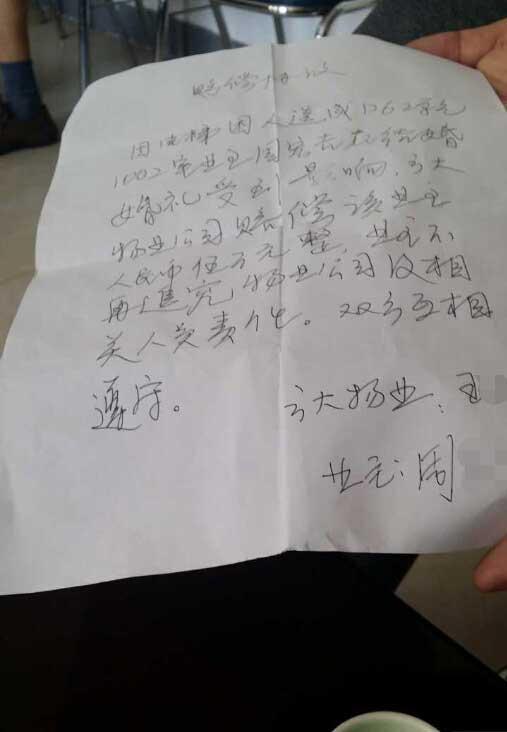 赔偿协议
因电梯困人造成1062室
1002室业主周家去结婚
婚礼受到影响,方大
物业公司赔偿该业主
人民币伍万元整,业主不
再追究物业公司及相
关人员责任。双方互相
遵守。
方大物业:王
业主:周